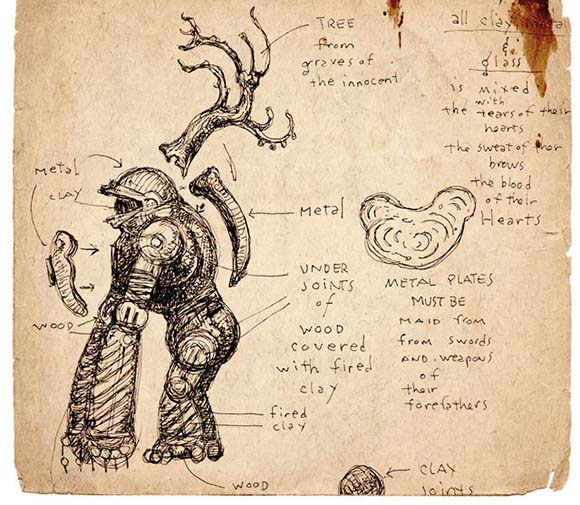 TREE
from
graves of
the innocent
all clay metal
&
glass
is mixed
with
the tears of their
hearts
the sweat of their
brows
the blood
of their
Hearts
metal
CLAY
WOOD
metal
UNDER
JOINTS
of
WOOD
covered
with fired
clay
fired
clay
WOOD
METAL PLATES
MUST BE
MAID from
from SWORDS
AND weapons
of
their
forefathers
CLAY
Joints